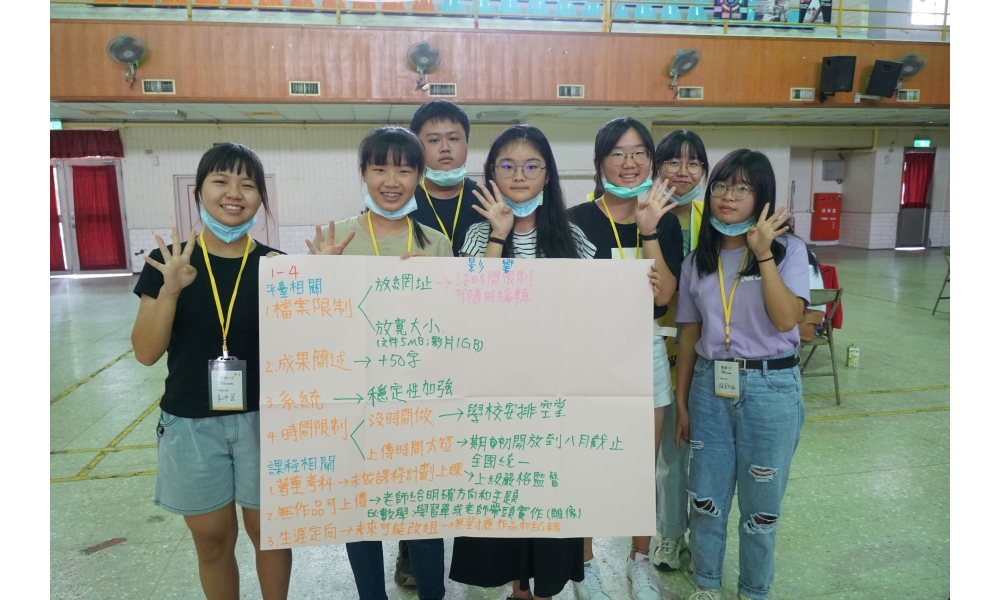 1-4
影響
平臺相關
1.檔案限制
放網址→沒時間限制
可隨時編輯
放寬大小
(文件5MB;影片1GB)
2.成果簡述→+50字
3.系統→穩定性加強
4.時間限制
沒時間做→學校安排空堂
上傳時間太短→期初開放到八月截止
課程相關
全國統一
1.著重考科→未依課程計劃上課→上級嚴格監督
2.無作品可上傳→老師給明確方向和主題
數學→學習單或老師帶頭實作
3.生涯定向→未來可能改組→無對應作品和紀錄